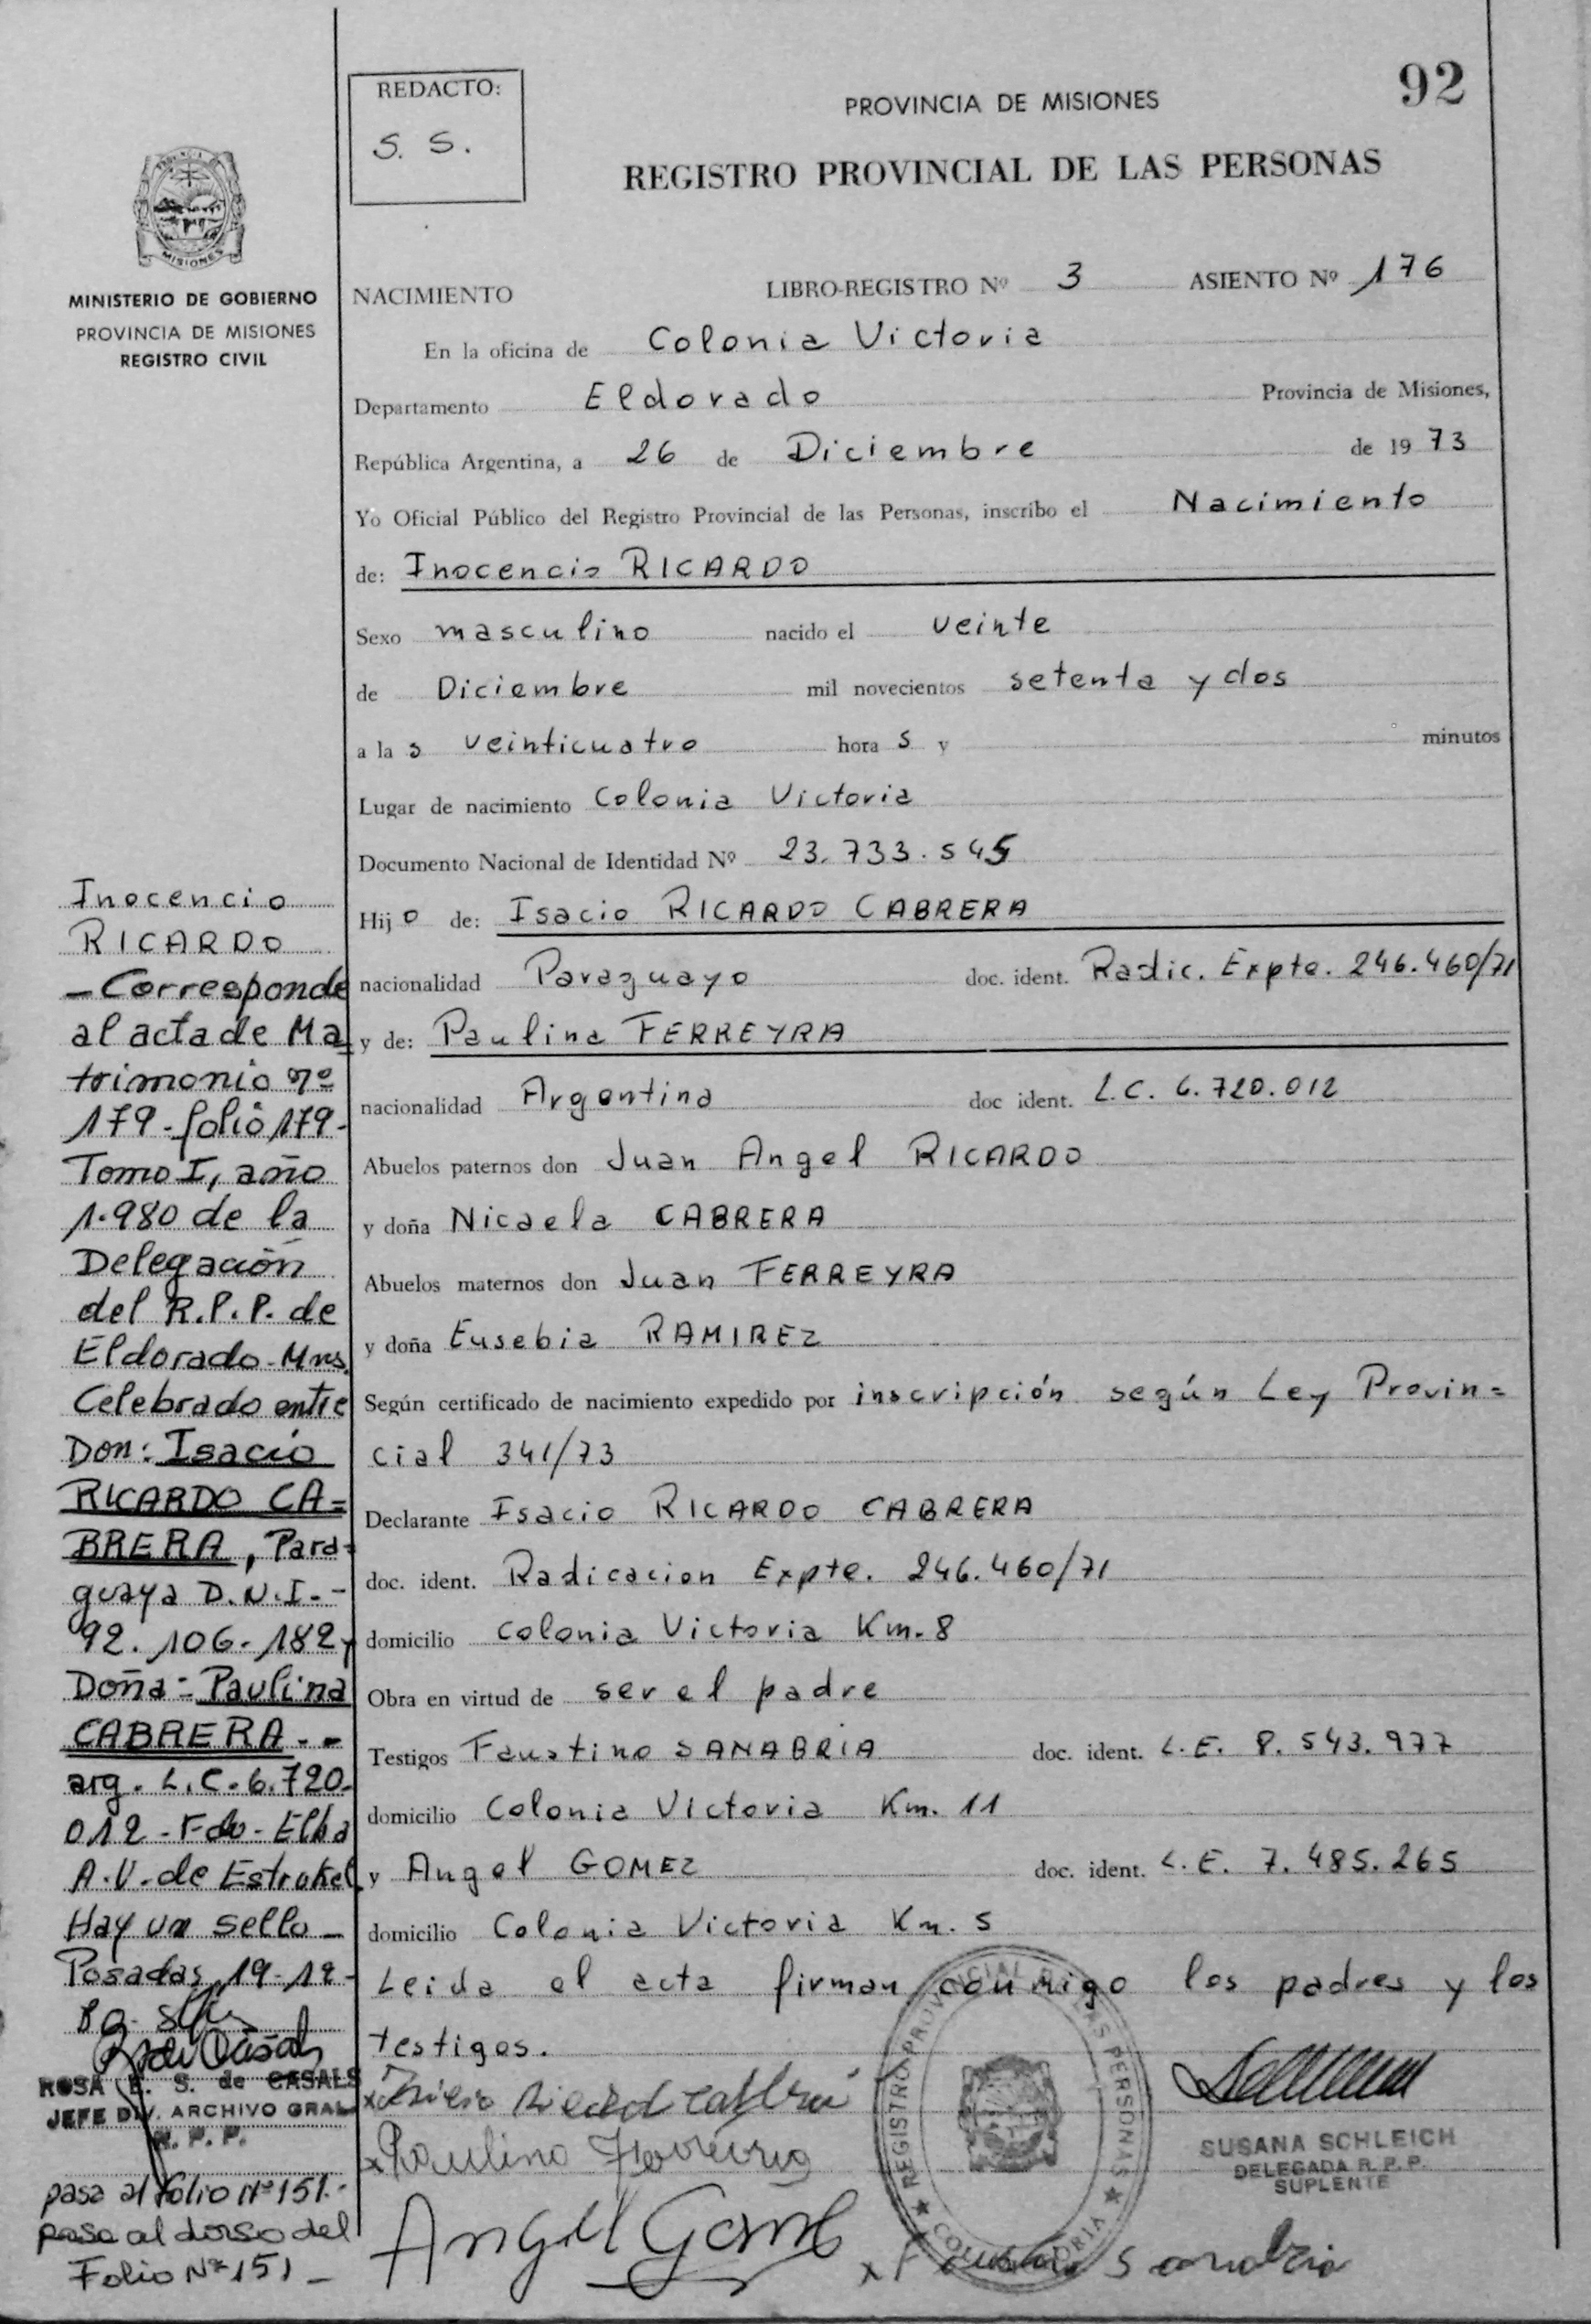 92
REDACTO:
S. S.
PROVINCIA DE MISIONES
REGISTRO PROVINCIAL DE LAS PERSONAS
MISIONES
MINISTERIO DE GOBIERNO
PROVINCIA DE MISIONES
REGISTRO CIVIL
NACIMIENTO LIBRO-REGISTRO Nº 3 ASIENTO Nº 176
En la oficina de Colonia Victoria
Departamento Eldorado Provincia de Misiones,
República Argentina, a 26 de Diciembre de 1973
Yo Oficial Público del Registro Provincial de las Personas, inscribo el Nacimiento
de: Inocencio RICARDO
Sexo masculino nacido el veinte
de Diciembre mil novecientos setenta y dos
a las veinticuatro horas y minutos
Lugar de nacimiento Colonia Victoria
Documento Nacional de Identidad Nº 23.733.545
Hijo de: Isacio RICARDO CABRERA
nacionalidad Paraguayo doc. ident. Radic. Expte. 246.460/71
y de: Paulina FERREYRA
nacionalidad Argentina doc ident. L.C. 6.720.012
Abuelos paternos don Juan Angel RICARDO
y doña Nicaela CABRERA
Abuelos maternos don Juan FERREYRA
y doña Eusebia RAMIREZ
Según certificado de nacimiento expedido por inscripción según Ley Provin=
cial 341/73
Declarante Isacio RICARDO CABRERA
doc. ident. Radicacion Expte. 246.460/71
domicilio Colonia Victoria Km. 8
Obra en virtud de ser el padre
Testigos Faustino SANABRIA doc. ident. L.E. 8.543.977
domicilio Colonia Victoria Km. 11
y Angel GOMEZ doc. ident. L.E. 7.485.265
domicilio Colonia Victoria Km. 5
Leida el acta firman conmigo los padres y los
testigos.
Paulina Ferreyra
Angel Gomez
REGISTRO PROVINCIAL DE LAS PERSONAS
SUSANA SCHLEICH
DELEGADA R. P. P.
SUPLENTE
Inocencio
RICARDO
-Corresponde
al acta de Ma
trimonio nº
179-folio 179-
Tomo I, año
1.980 de la
Delegación
del R.P.P. de
Eldorado-Mns.
Celebrado entre
Don: Isacio
RICARDO CA=
BRERA, Para-
guaya D.N.I.-
92.106.182 y
Doña: Paulina
CABRERA.-
arg. L.C. 6.720.
012-Fdo-Elba
A.V. de Estrakel
Hay un sello-
Posadas, 19-12-
ROSA E. S. de CASALS
JEFE DIV. ARCHIVO GRAL
R. P. P.
pasa al folio Nº 151.-
pasa al dorso del
Folio Nº 151-